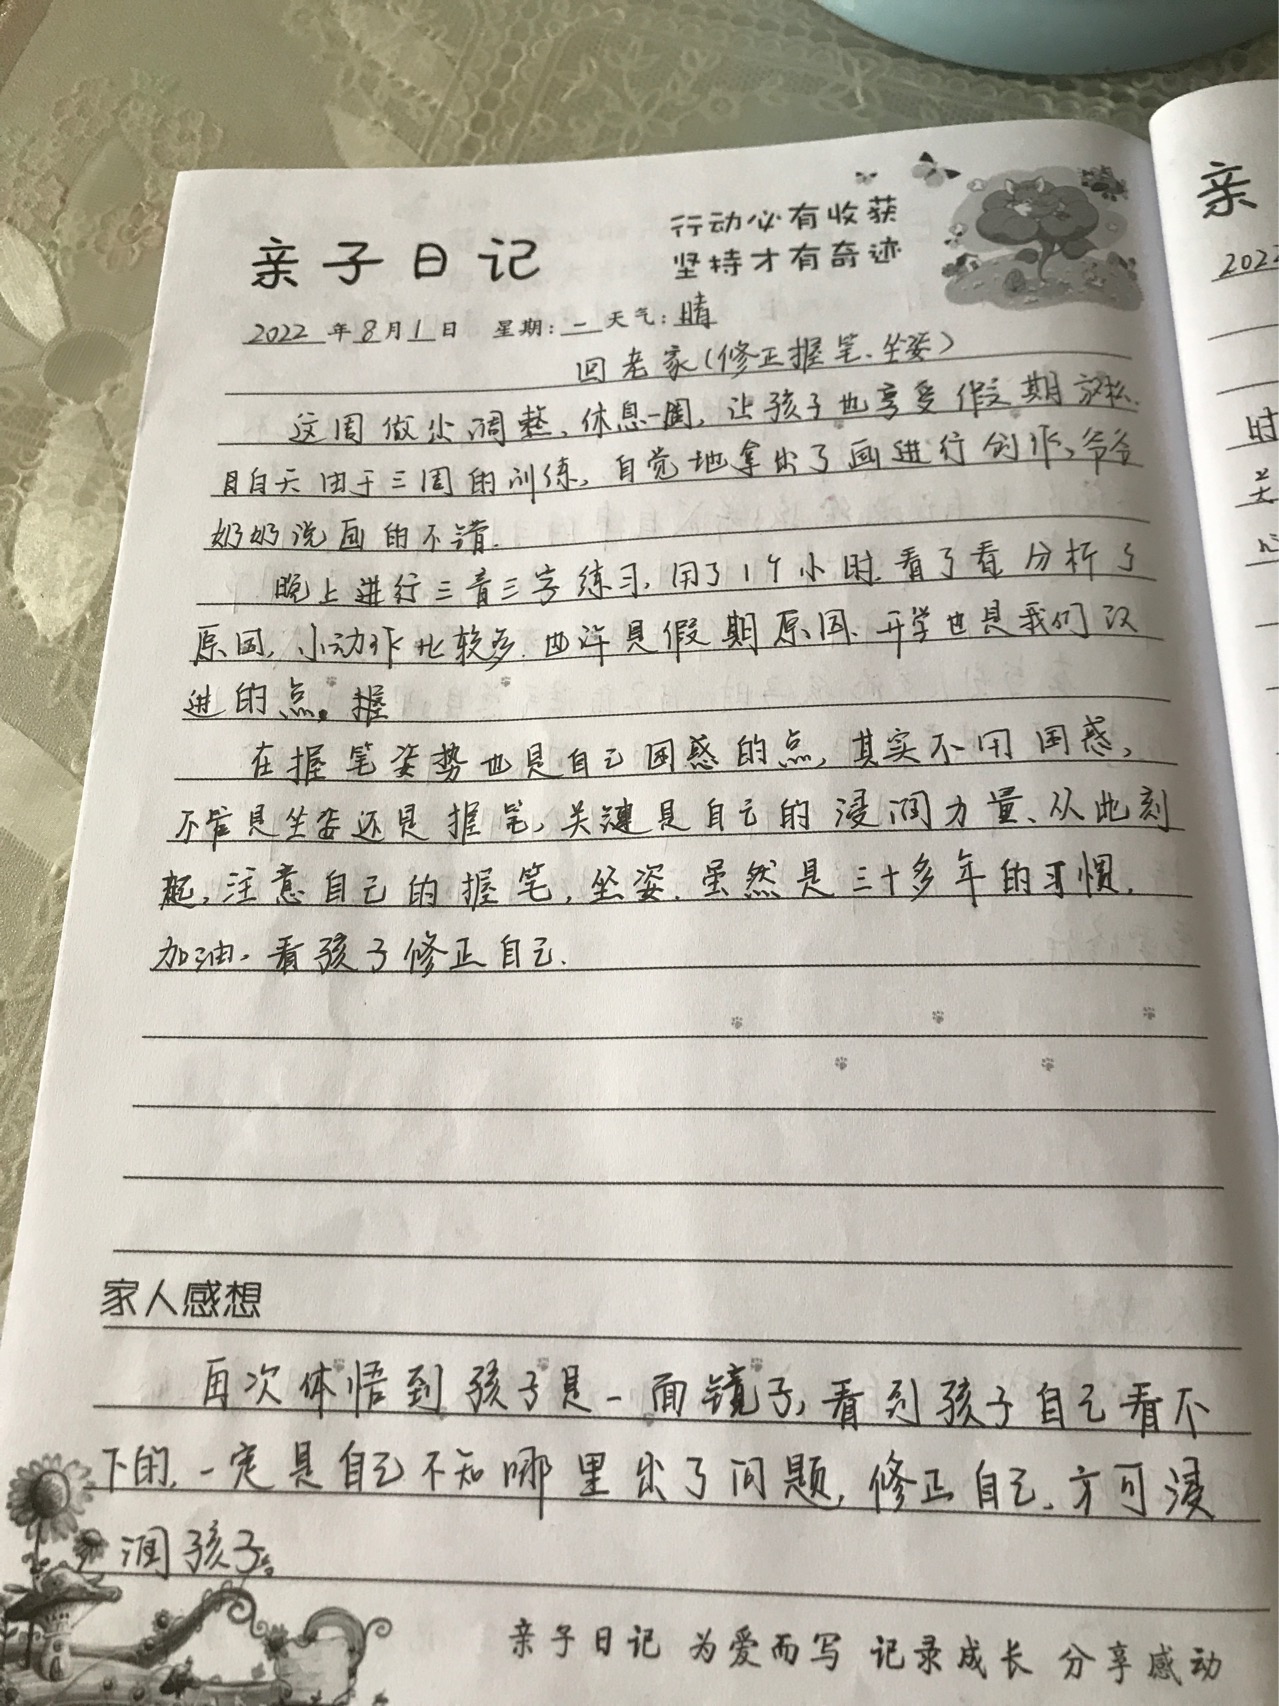 亲子日记
行动必有收获
坚持才有奇迹
2022年8月1日 星期:一天气:晴
回老家(修正握笔、坐姿)
这周做出调整,休息一周,让孩子也享受假期放松.
白天由于三周的训练,自觉地拿出了画进行创作,爷爷
奶奶说画的不错.
晚上进行三音三字练习,用了1个小时.看了看分析了
原因,小动作比较多.也许是假期原因、开学也是我们改
进的点。握
在握笔姿势也是自己困惑的点,其实不用困惑,
不管是坐姿还是握笔,关键是自己的浸润力量、从此刻
起,注意自己的握笔,坐姿.虽然是三十多年的习惯,
加油.看孩子修正自己.
家人感想
再次体悟到孩子是一面镜子,看到孩子自己看不
下的,一定是自己不知哪里出了问题,修正自己、方可浸
润孩子。
亲子日记 为爱而写 记录成长 分享感动
亲
202
时
关
心